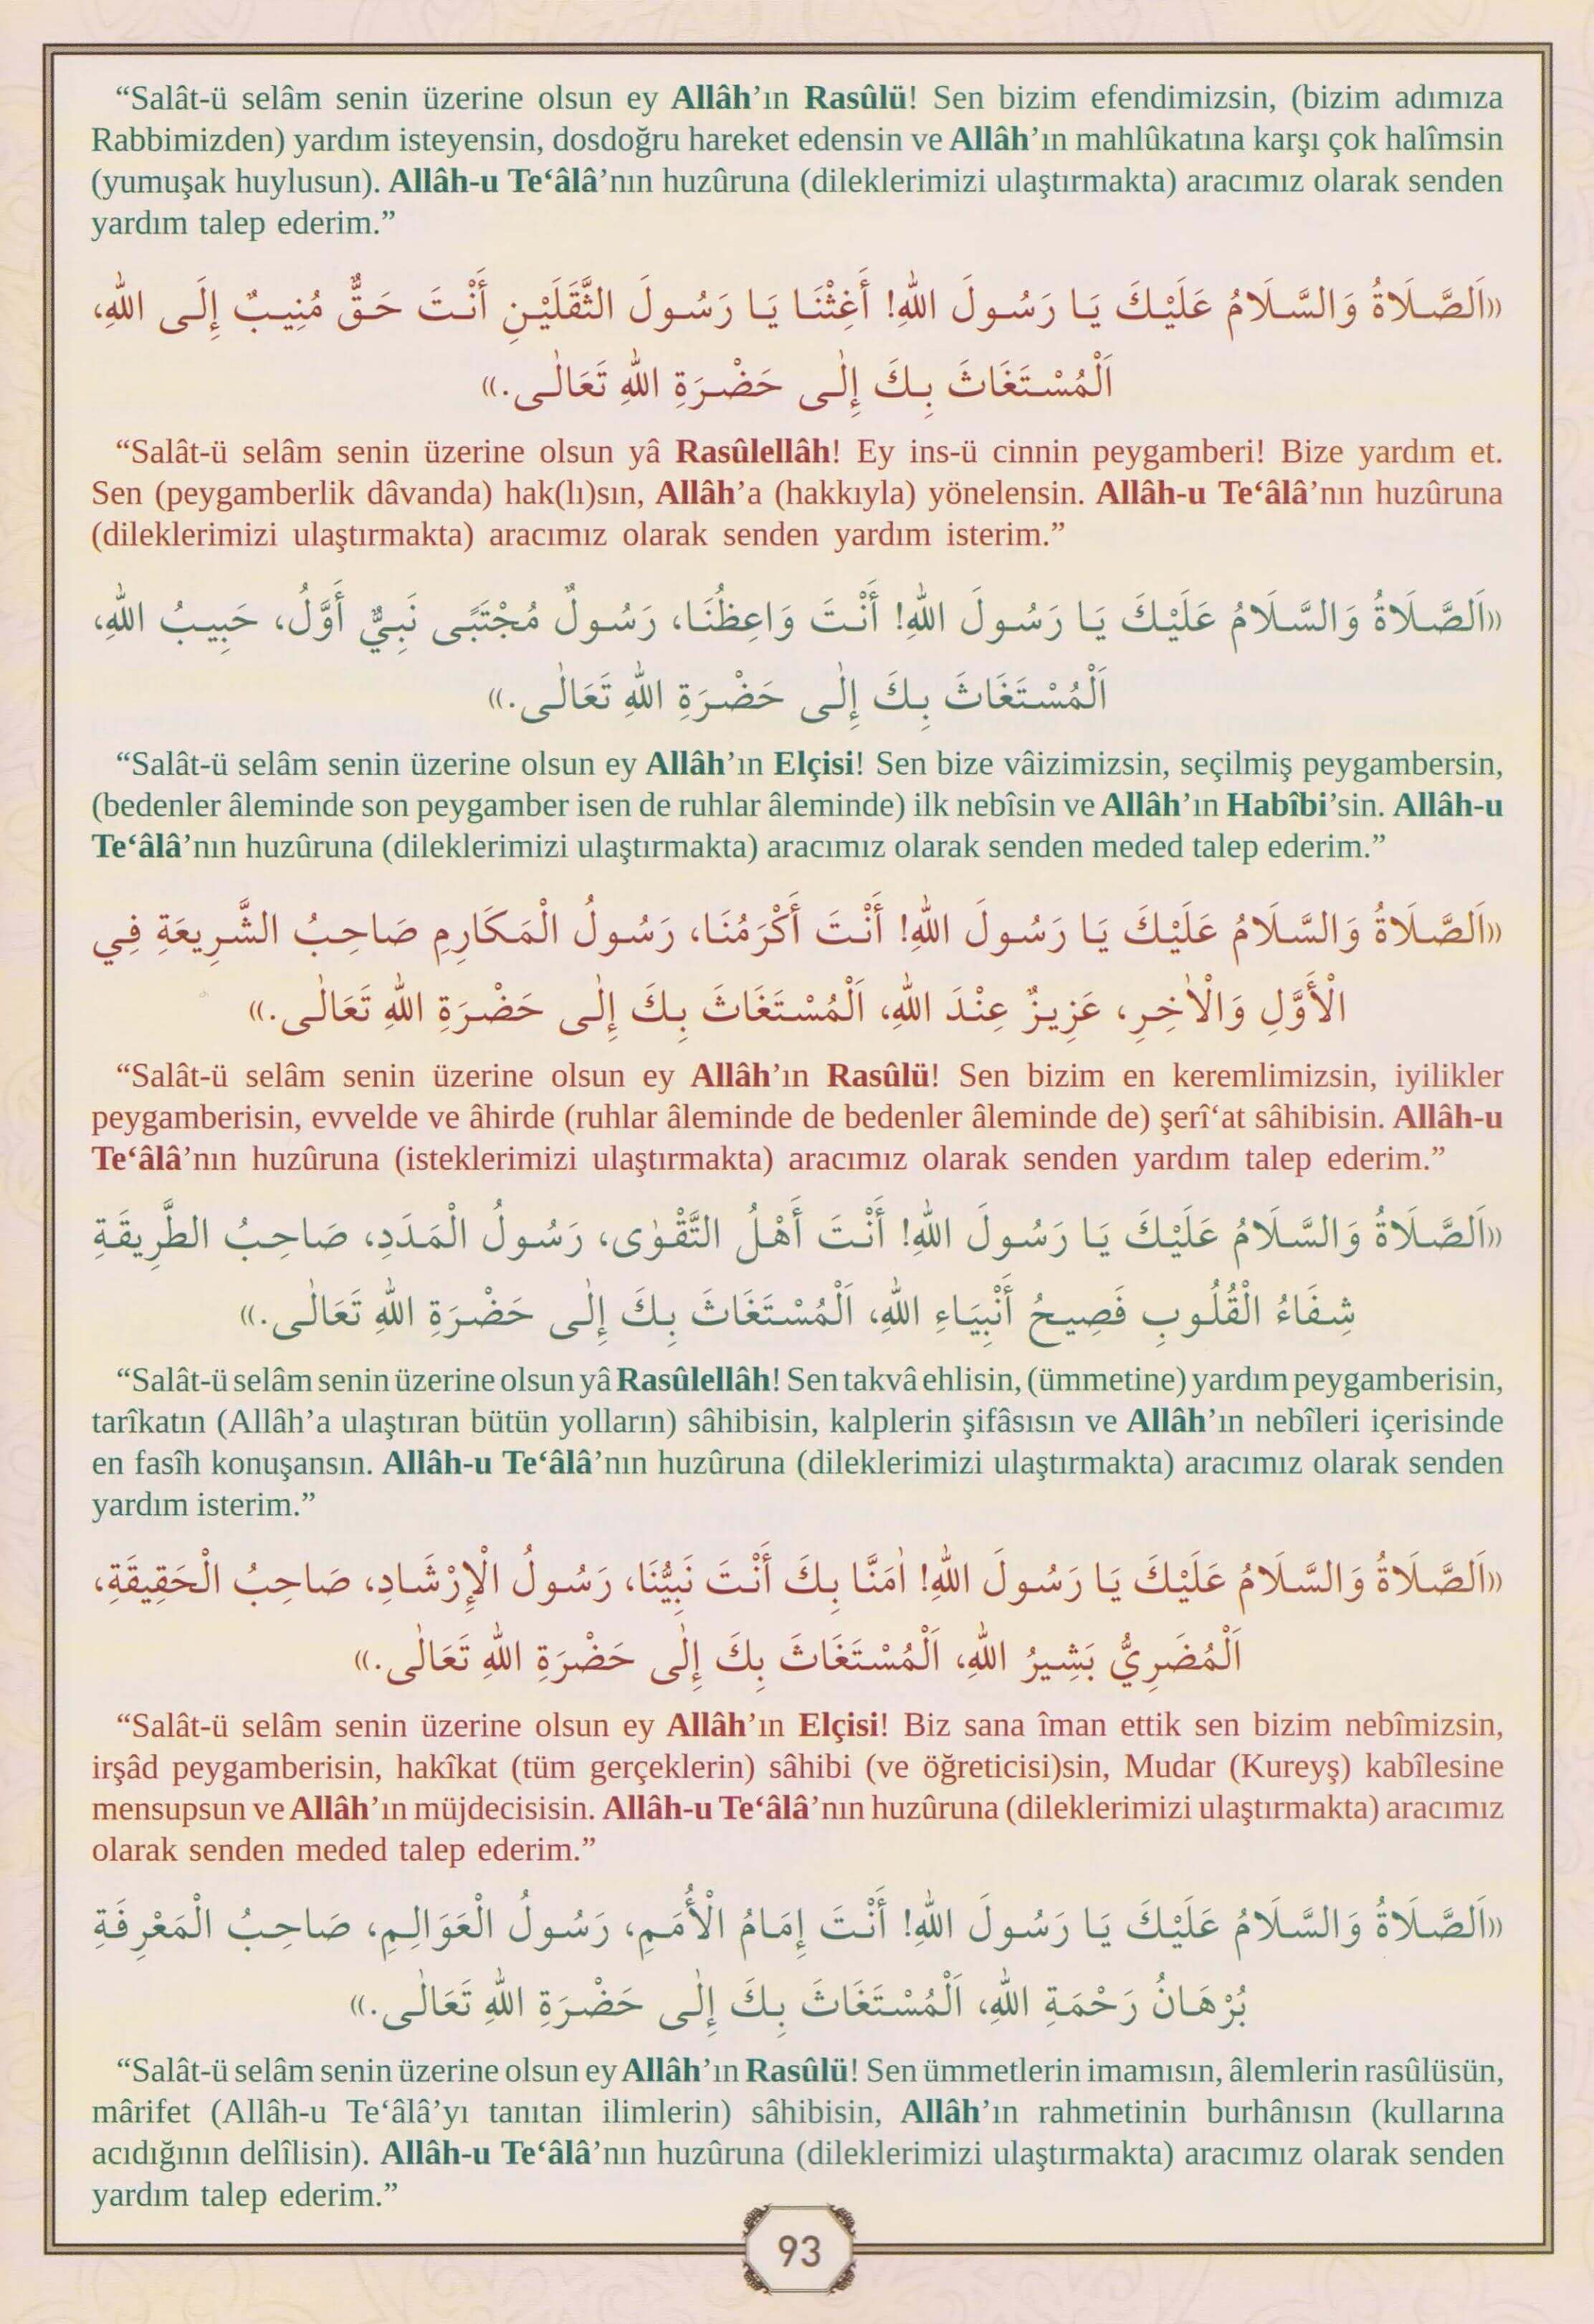 “Salât-ü selâm senin üzerine olsun ey Allâh’ın Rasûlü! Sen bizim efendimizsin, (bizim adımıza
Rabbimizden) yardım isteyensin, dosdoğru hareket edensin ve Allâh’ın mahlûkatına karşı çok halîmsin
(yumuşak huylusun). Allâh-u Te‘âlâ’nın huzûruna (dileklerimizi ulaştırmakta) aracımız olarak senden
yardım talep ederim.”
«اَلصَّلَاةُ وَالسَّلَامُ عَلَيْكَ يَا رَسُولَ اللهِ! أَغِثْنَا يَا رَسُولَ الثَّقَلَيْنِ أَنْتَ حَقٌّ مُنِيبٌ إِلَى اللهِ،
اَلْمُسْتَغَاثَ بِكَ إِلٰى حَضْرَةِ اللهِ تَعَالٰى.»
“Salât-ü selâm senin üzerine olsun yâ Rasûlellâh! Ey ins-ü cinnin peygamberi! Bize yardım et.
Sen (peygamberlik dâvanda) hak(lı)sın, Allâh’a (hakkıyla) yönelensin. Allâh-u Te‘âlâ’nın huzûruna
(dileklerimizi ulaştırmakta) aracımız olarak senden yardım isterim.”
«اَلصَّلَاةُ وَالسَّلَامُ عَلَيْكَ يَا رَسُولَ اللهِ! أَنْتَ وَاعِظُنَا، رَسُولٌ مُجْتَبًى نَبِيٌّ أَوَّلُ، حَبِيبُ اللهِ،
اَلْمُسْتَغَاثَ بِكَ إِلٰى حَضْرَةِ اللهِ تَعَالٰى.»
“Salât-ü selâm senin üzerine olsun ey Allâh’ın Elçisi! Sen bize vâizimizsin, seçilmiş peygambersin,
(bedenler âleminde son peygamber isen de ruhlar âleminde) ilk nebîsin ve Allâh’ın Habîbi’sin. Allâh-u
Te‘âlâ’nın huzûruna (dileklerimizi ulaştırmakta) aracımız olarak senden meded talep ederim.”
«اَلصَّلَاةُ وَالسَّلَامُ عَلَيْكَ يَا رَسُولَ اللهِ! أَنْتَ أَكْرَمُنَا، رَسُولُ الْمَكَارِمِ صَاحِبُ الشَّرِيعَةِ فِي
الْأَوَّلِ وَالْاٰخِرِ، عَزِيزٌ عِنْدَ اللهِ، اَلْمُسْتَغَاثَ بِكَ إِلٰى حَضْرَةِ اللهِ تَعَالٰى.»
“Salât-ü selâm senin üzerine olsun ey Allâh’ın Rasûlü! Sen bizim en keremlimizsin, iyilikler
peygamberisin, evvelde ve âhirde (ruhlar âleminde de bedenler âleminde de) şerî‘at sâhibisin. Allâh-u
Te‘âlâ’nın huzûruna (isteklerimizi ulaştırmakta) aracımız olarak senden yardım talep ederim.”
«اَلصَّلَاةُ وَالسَّلَامُ عَلَيْكَ يَا رَسُولَ اللهِ! أَنْتَ أَهْلُ التَّقْوٰى، رَسُولُ الْمَدَدِ، صَاحِبُ الطَّرِيقَةِ
شِفَاءُ الْقُلُوبِ فَصِيحُ أَنْبِيَاءِ اللهِ، اَلْمُسْتَغَاثَ بِكَ إِلٰى حَضْرَةِ اللهِ تَعَالٰى.»
“Salât-ü selâm senin üzerine olsun yâ Rasûlellâh! Sen takvâ ehlisin, (ümmetine) yardım peygamberisin,
tarîkatın (Allâh’a ulaştıran bütün yolların) sâhibisin, kalplerin şifâsısın ve Allâh’ın nebîleri içerisinde
en fasîh konuşansın. Allâh-u Te‘âlâ’nın huzûruna (dileklerimizi ulaştırmakta) aracımız olarak senden
yardım isterim.”
«اَلصَّلَاةُ وَالسَّلَامُ عَلَيْكَ يَا رَسُولَ اللهِ! اٰمَنَّا بِكَ أَنْتَ نَبِيُّنَا، رَسُولُ الْإِرْشَادِ، صَاحِبُ الْحَقِيقَةِ،
اَلْمُضَرِيُّ بَشِيرُ اللهِ، اَلْمُسْتَغَاثَ بِكَ إِلٰى حَضْرَةِ اللهِ تَعَالٰى.»
“Salât-ü selâm senin üzerine olsun ey Allâh’ın Elçisi! Biz sana îman ettik sen bizim nebîmizsin,
irşâd peygamberisin, hakîkat (tüm gerçeklerin) sâhibi (ve öğreticisi)sin, Mudar (Kureyş) kabîlesine
mensupsun ve Allâh’ın müjdecisisin. Allâh-u Te‘âlâ’nın huzûruna (dileklerimizi ulaştırmakta) aracımız
olarak senden meded talep ederim.”
«اَلصَّلَاةُ وَالسَّلَامُ عَلَيْكَ يَا رَسُولَ اللهِ! أَنْتَ إِمَامُ الْأُمَمِ، رَسُولُ الْعَوَالِمِ، صَاحِبُ الْمَعْرِفَةِ
بُرْهَانُ رَحْمَةِ اللهِ، اَلْمُسْتَغَاثَ بِكَ إِلٰى حَضْرَةِ اللهِ تَعَالٰى.»
“Salât-ü selâm senin üzerine olsun ey Allâh’ın Rasûlü! Sen ümmetlerin imamısın, âlemlerin rasûlüsün,
mârifet (Allâh-u Te‘âlâ’yı tanıtan ilimlerin) sâhibisin, Allâh’ın rahmetinin burhânısın (kullarına
acıdığının delîlisin). Allâh-u Te‘âlâ’nın huzûruna (dileklerimizi ulaştırmakta) aracımız olarak senden
yardım talep ederim.”
93